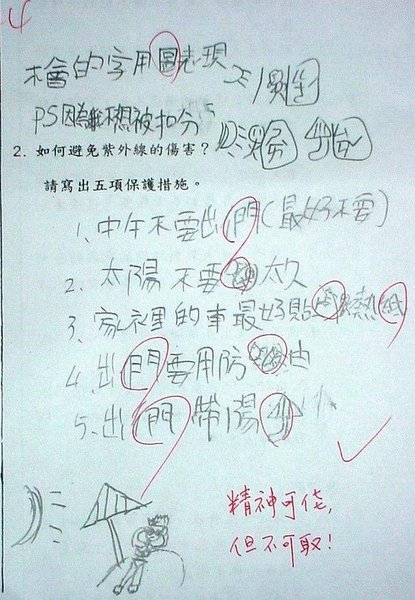 4
不會的字用圖表現
PS因為誰不想被扣分
2. 如何避免紫外線的傷害?
請寫出五項保護措施。
1、中午不要出門(最好不要)
2、太陽不要 太久
3、家裡的車最好貼 熱紙
4、出門要用防 油
5、出門帶陽
精神可佳,
但不可取!